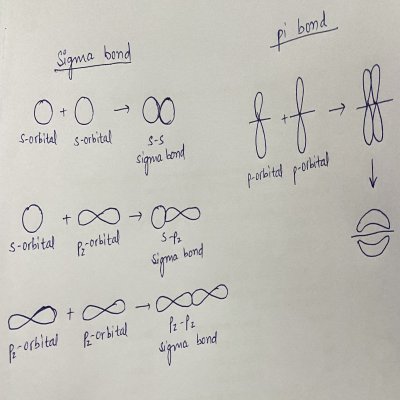 sigma bond
pi bond
+
→
s-orbital
s-orbital
s-s
sigma bond
+
→
p-orbital
p-orbital
+
→
s-orbital
pz-orbital
s-pz
sigma bond
+
→
pz-orbital
pz-orbital
pz-pz
sigma bond